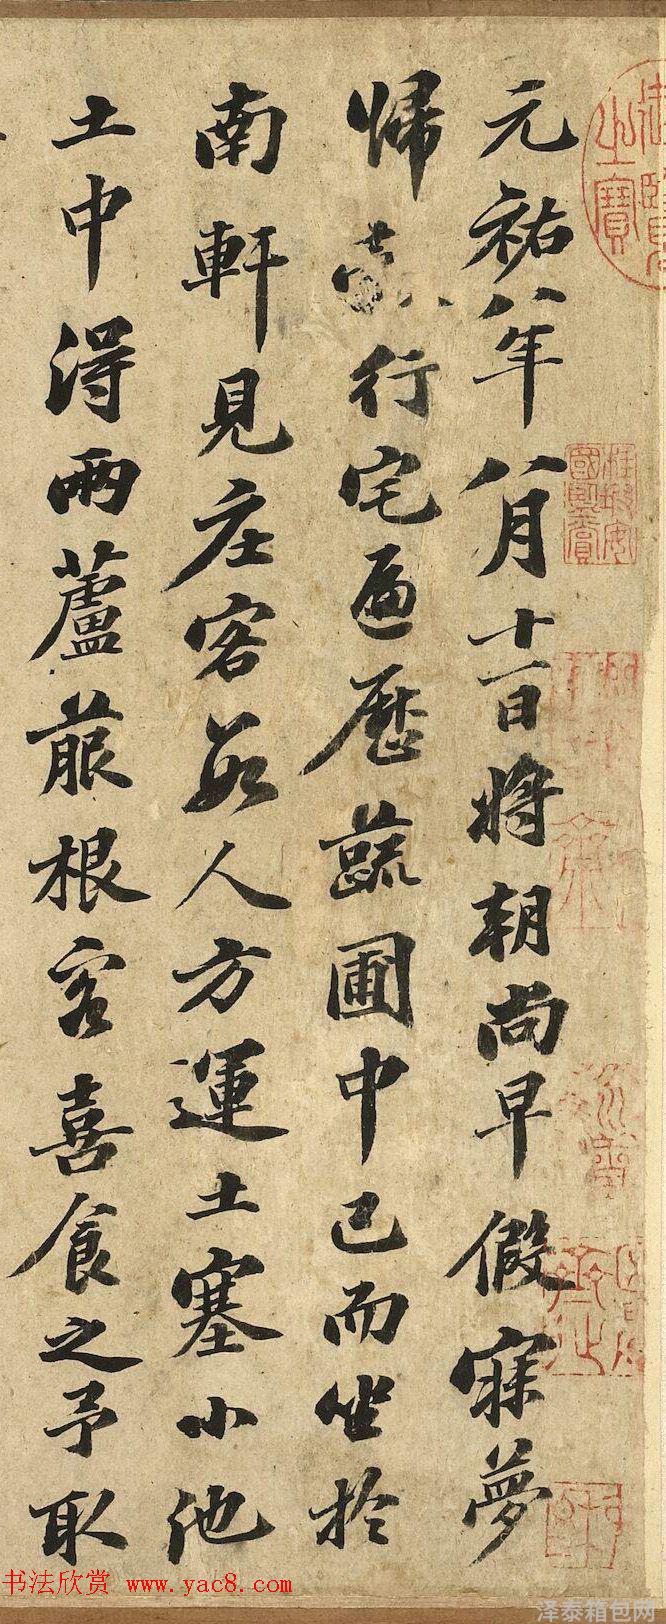 元祐八年八月十一日將朝尚早假寐夢
歸行宅遍歷蔬圃中已而坐於
南軒見庄客數人方運土塞小池
土中得兩蘆菔根客喜食之予取
御覽之寶
书法欣赏 www.yac8.com
泽泰箱包网